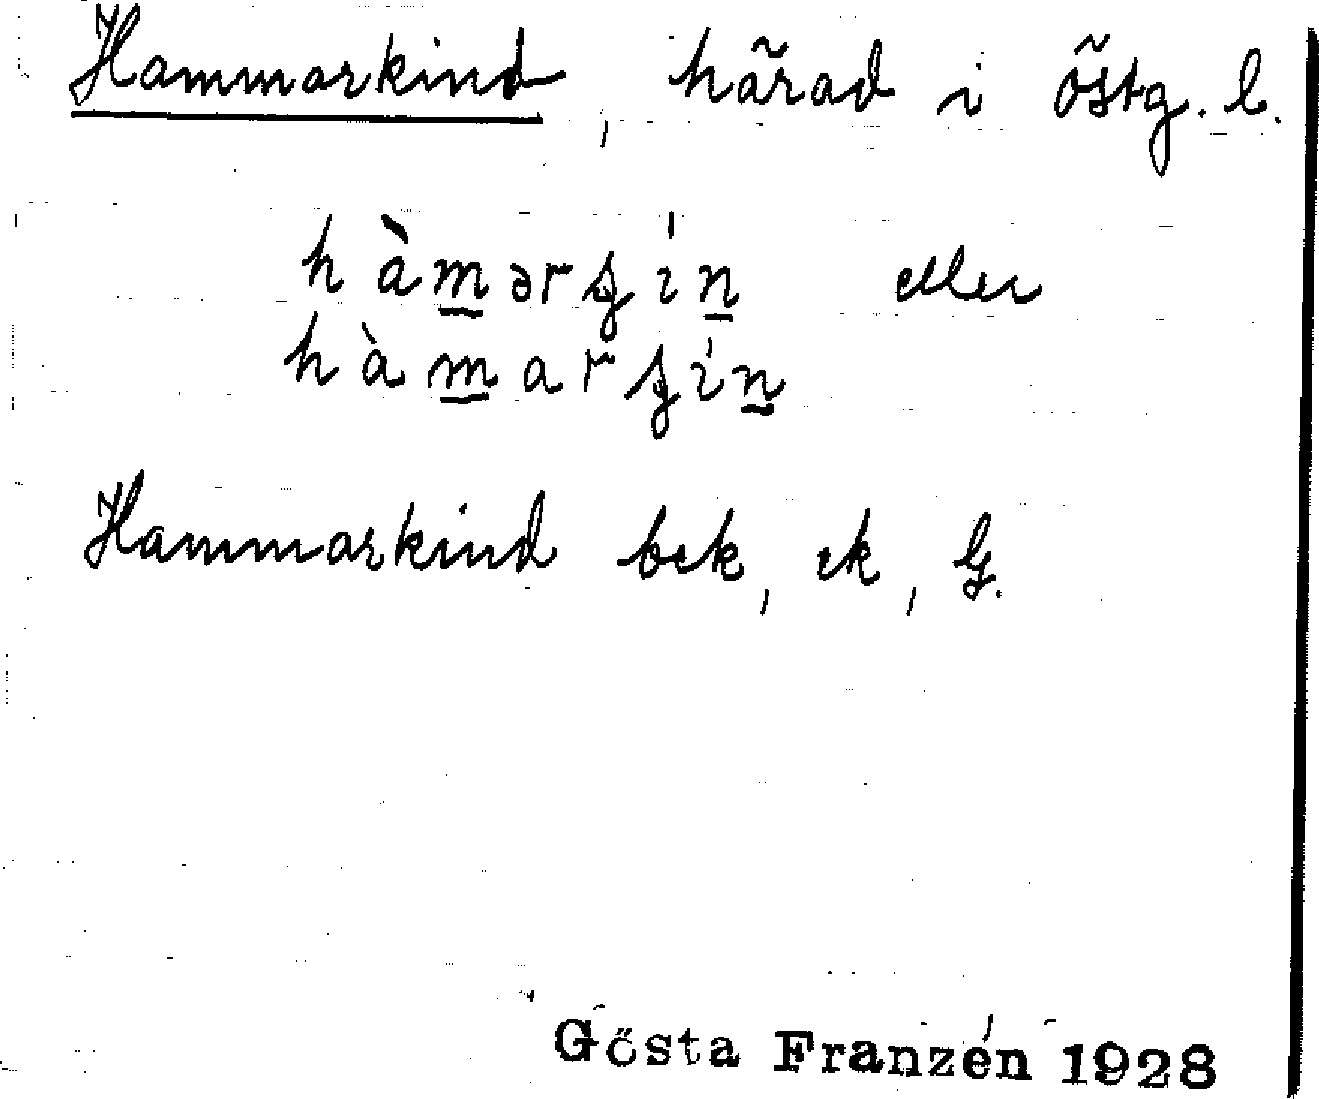 Hammarkind, härad i Östg. l.
hàmərʂın eller
hàmarʂın
Hammarkind bek, ek, G.
Gösta Franzén 1928